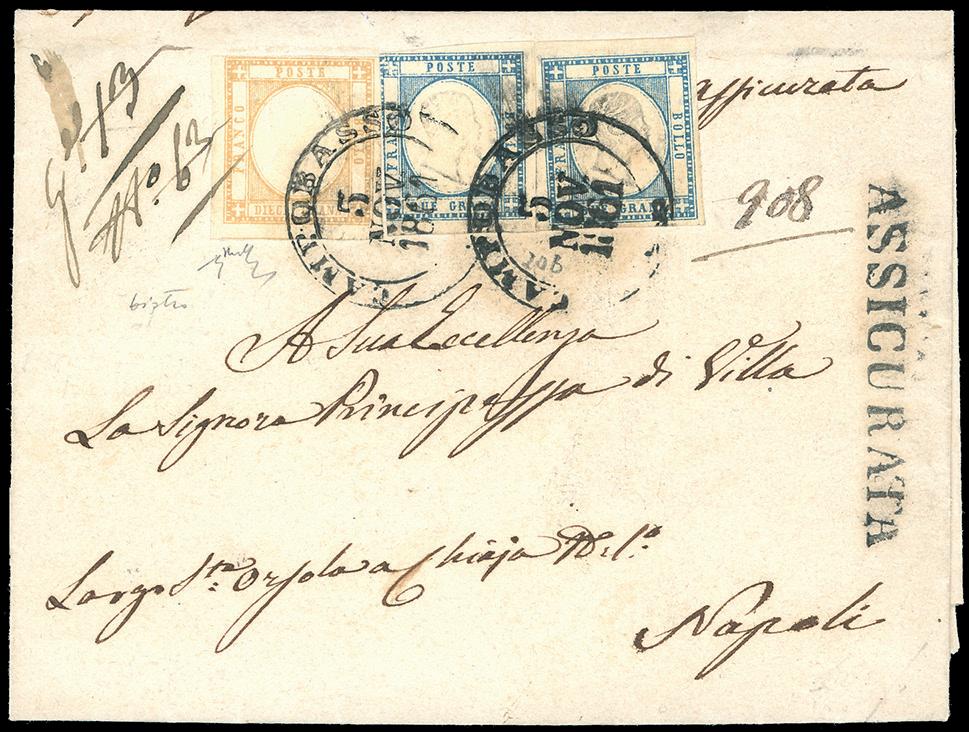 POSTE
FRANCO
BOLLO
DIECI GRANA
POSTE
FRANCO
DUE GRANA
POSTE
FRANCO
BOLLO
GRANA
CAMPOBASSO
5
NOV
1861
CAMPOBASSO
5
NOV
1861
assicurata
N.o 63
908
ASSICURATA
A Sua Eccellenza
La Signora Principessa di Villa
Largo S.ta Orsola a Chiaja
Napoli